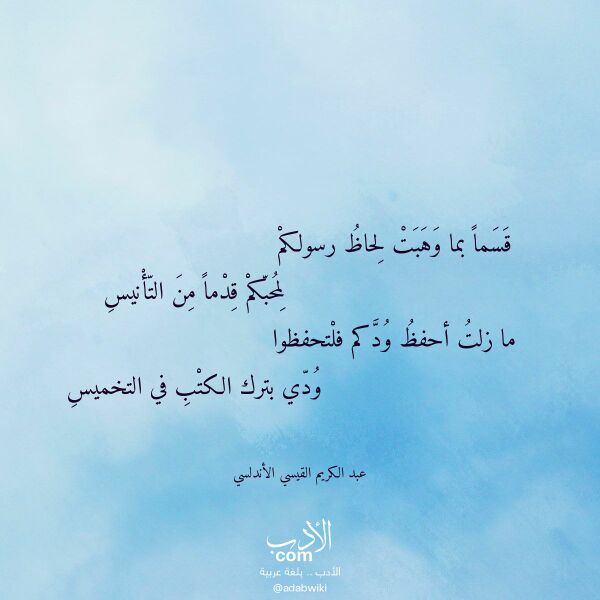 قَسَماً بما وَهَبَتْ لِحاظُ رسولكمْ
لِمُحبّكمْ قِدْماً مِنَ التّأْنيسِ
ما زلتُ أحفظُ وُدَّكم فلْتحفظوا
وُدّي بترك الكتْبِ في التخميسِ
عبد الكريم القيسي الأندلسي
الأدب
com
الأدب .. بلغة عربية
@adabwiki